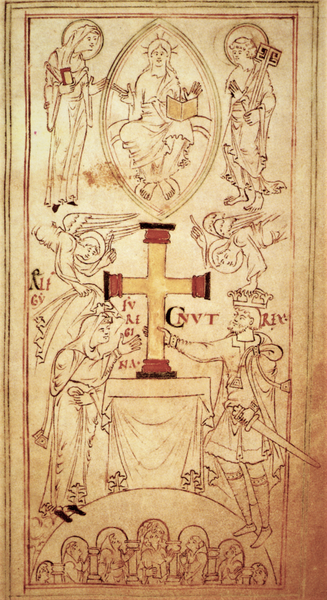 ÆLF
GY
FV
REGI
NA·
CNVT REX